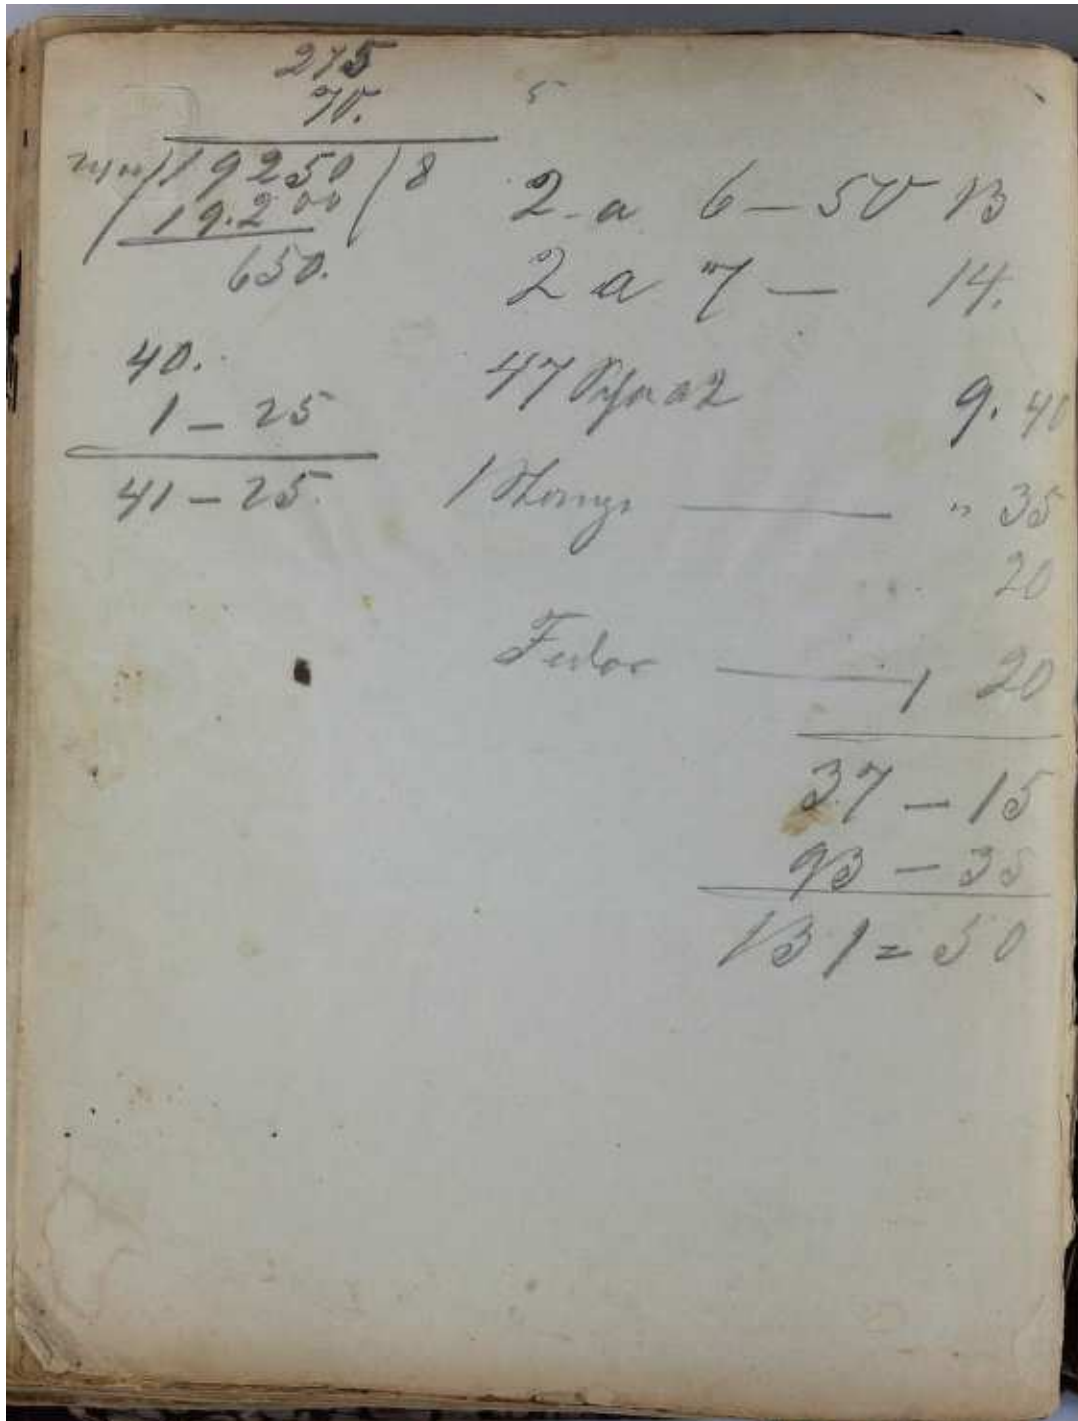 275
70.
19250 / 8
19.200
650.
40.
1 - 25
41 - 25.
5
2 a 6 - 50 13
2 a 7 - 14.
47 a 2 9. 40
1 Stange " 35
20
Fedor 1 20
37 - 15
93 - 35
131 = 50